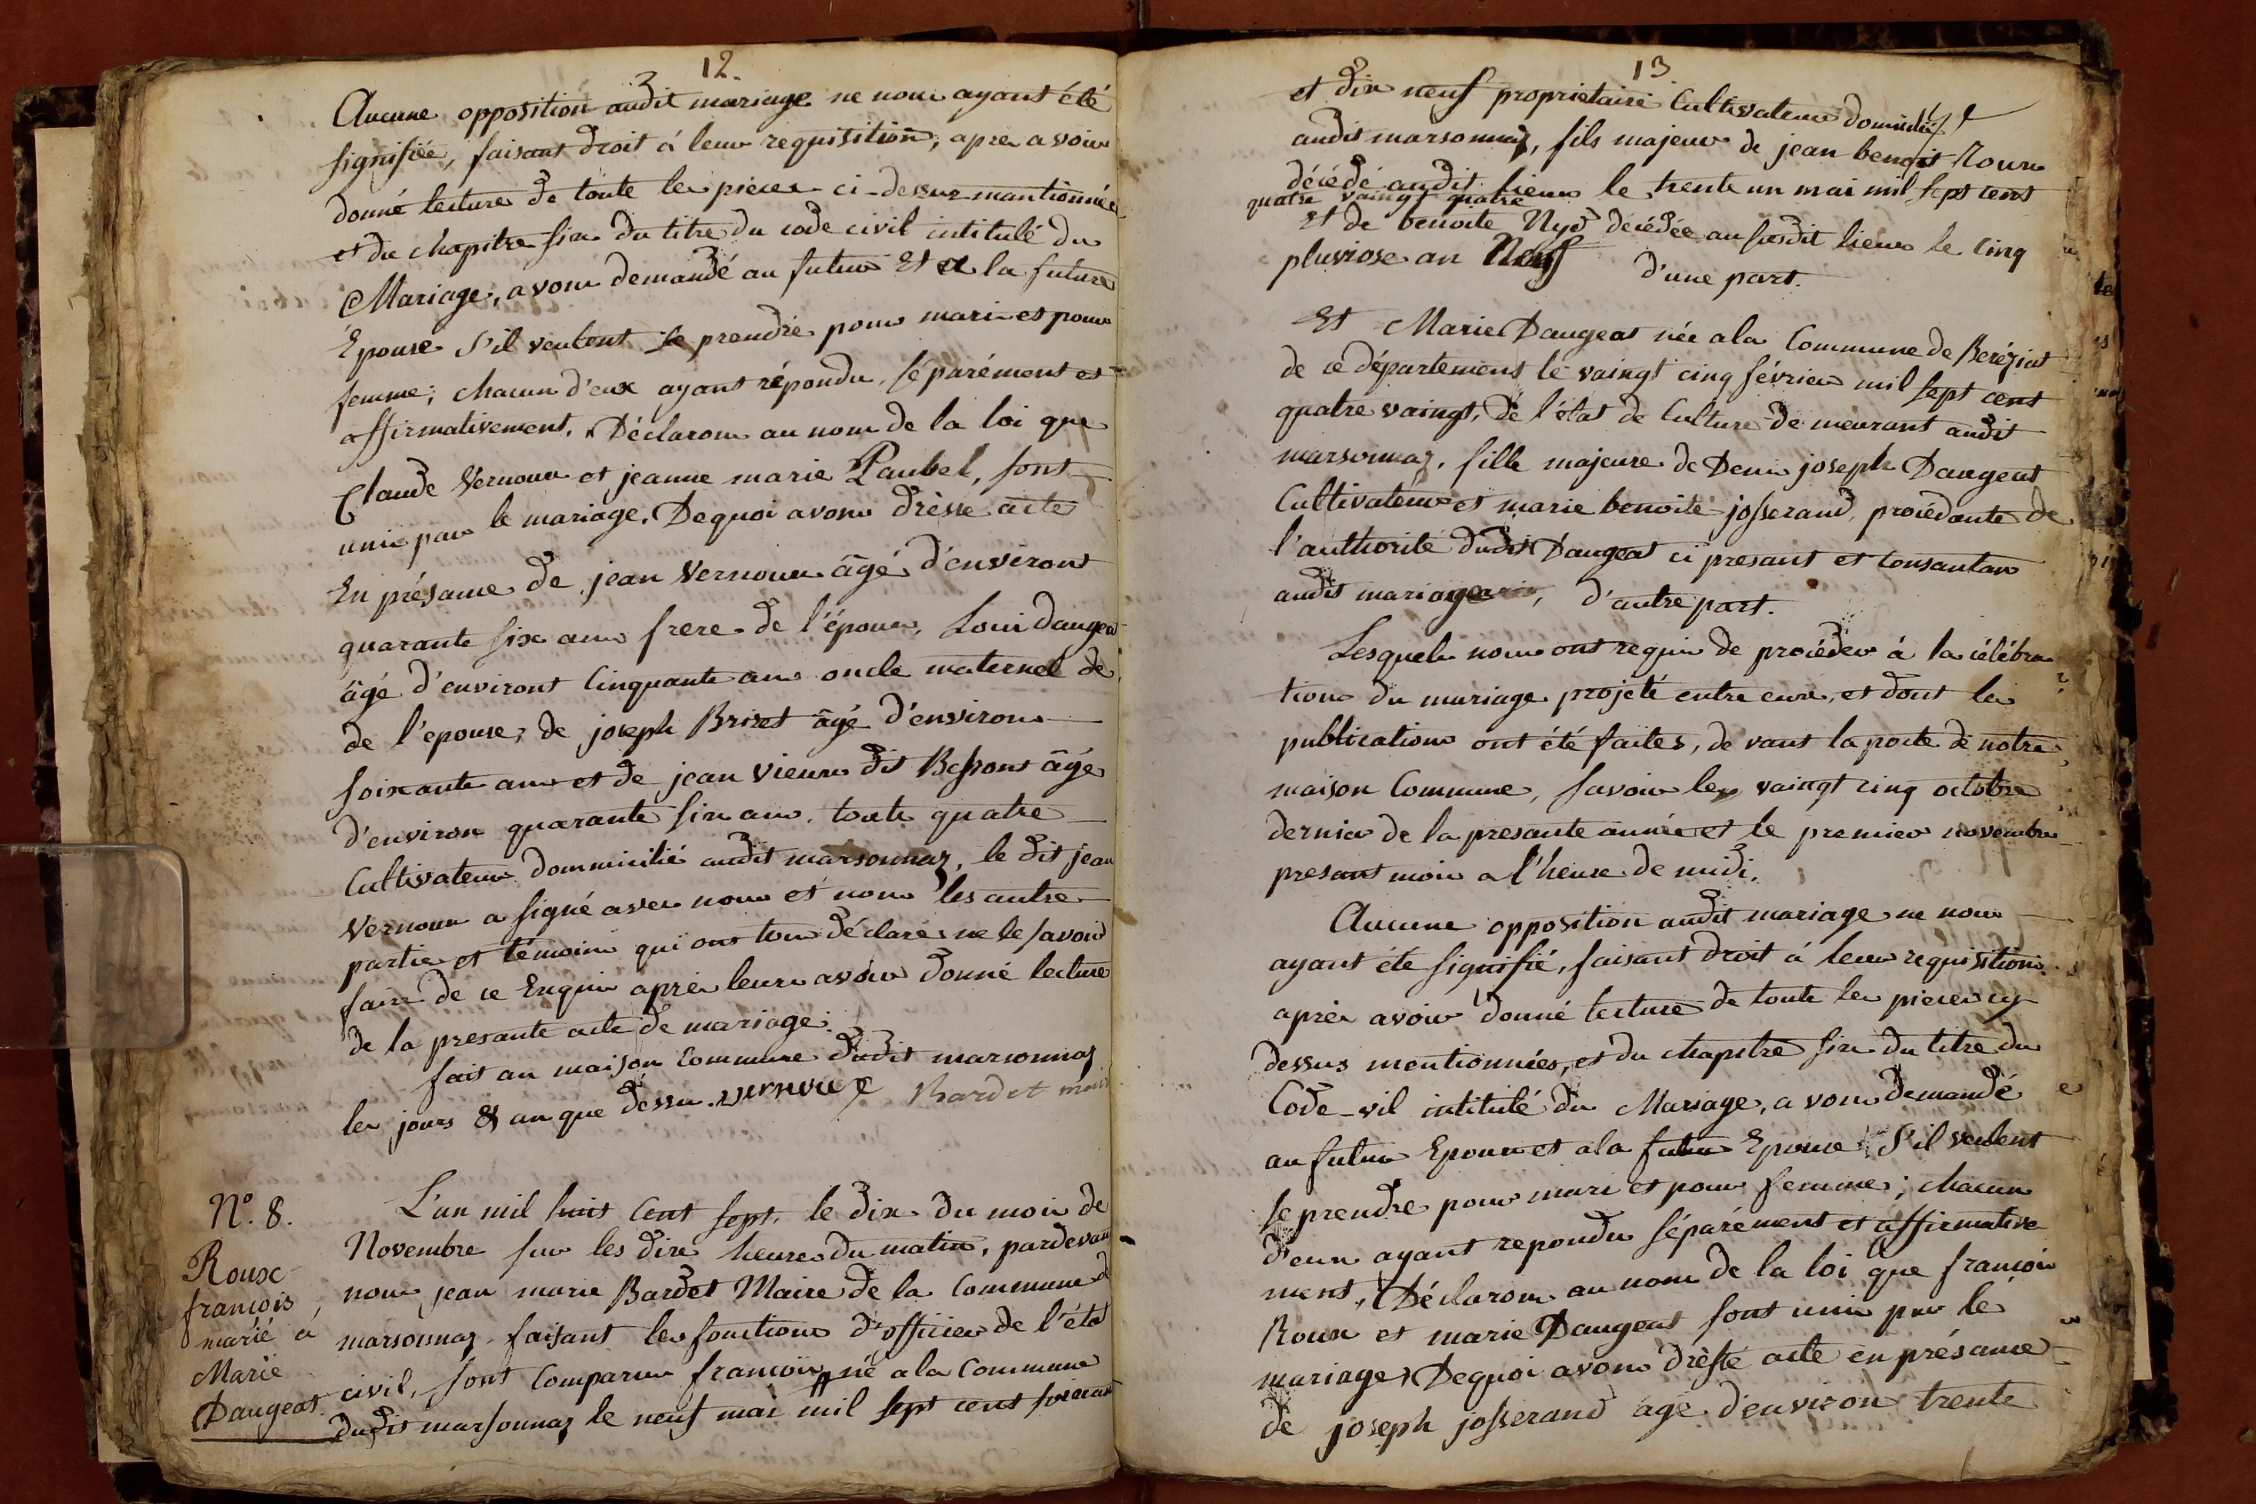 12.
Aucune opposition audit mariage ne nous ayant été
signifiée, faisant droit à leur requisition, apres avoir
donné lecture de toute les pieces ci-dessus mantionnée
et du chapitre six du titre du code civil intitulé du
Mariage, avons demandé au futur Et a la future
Epouse s'il veulent se prendre pour mari et pour
femme; chacun d'eux ayant répondu séparément et
affirmativement. Déclarons au nom de la loi que
Claude Vernoux et jeanne marie Paubel, sont
unis par le mariage. Dequoi avons drèsse acte
En présance de jean Vernoux âgé d'environt
quarante six ans frere de l'époux, Louis Dangeat
âgé d'environt Cinquante ans oncle maternel de
de l'epouse, de joseph Brivet âgé d'environ
soixante ans et de jean Vieux dit Bessont âgé
d'environ quarante six ans, toute quatre
Cultivateurs dommicilié audit marsonnaz, le dit jean
Vernoux a signé avec nous et non les autre
partie et témoins qui ont tous déclaré ne le savoir
faire de ce Enquis après leurs avoir donné lecture
de la presante acte de mariage.
fait au maison Commune dudit marsonnaz
les jours & an que dessu. vernoux Bardet maire
Nº. 8.
Roux
françois,
marié à
Marie
Dangeat
L'an mil huit Cent sept, le dix du mois de
Novembre sur les dix heures du matin, pardevant
nous jean marie Bardet Maire de la Commune de
marsonnaz, faisant les fonctions d'officier de l'état
civil, sont Comparus françois né a la Commune
dudit marsonnaz le neuf mai mil sept cent soixante
13
et dix neuf proprietaire Cultivateur domicilié
audit marsonnaz, fils majeur de jean benoit Roux
décédé audit lieux le trente un mai mil sept cent
quatre vaingt quatre
Et de benoite Nyd décédée au susdit lieux le Cinq
pluviose an Neuf d'une part.
Et Marie Dangeat née a la Commune de Beréziat
de ce département le vaingt cinq février mil sept cent
quatre vaingt, de l'état de Culture demeurant audit
marsonnaz, fille majeure de Denis joseph Dangeat
Cultivateur et marie benoite josserand, procédante de
l'authorité dudit Dangeat ci presant et consantant
audit mariage, d'autre part.
Lesquels nous ont requis de procéder à la célébra
tion du mariage projeté entre eux, et dont les
publications ont été faites, devant la porte de notre
maison Commune, savoir les vaingt cinq octobre
dernier de la presante année et le premier novembre
presant mois a l'heure de midi.
Aucune opposition audit mariage ne nous
ayant été signifié, faisant droit à leur requisition
après avoir donné lecture de toute les pieces cy
dessus mentionnées, et du chapitre six du titre du
Code-vil intitulé du Mariage, avons demandé
au futur Epoux et a la futur Epouse s'il veulent
se prendre pour mari et pour femme; chacun
d'eux ayant repondu séparément et affirmative
ment, Déclarons au nom de la loi que françois
Roux et marie Dangeat sont unis par le
mariage, Dequoi avons drèssé acte en présance
de joseph josserand agé d'environ trente